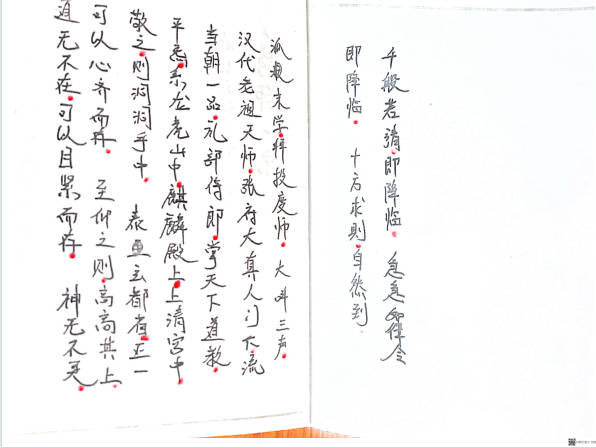 道无不在。可以目而存。 神无不灵。
可以心齐而存。 至仰之则。高高共上。
敬之。则洞洞乎中。 泰玄都省。正一
平系龙虎山中。麒麟殿上。上清宫中。
当朝一品。礼部侍郎。掌天下道教。
汉代老祖天师。张府大真人门下流
派末学。拜投度师。 大三声。
即降临。 十方求则。自然到。
千般若请。即降临。 急急如律令